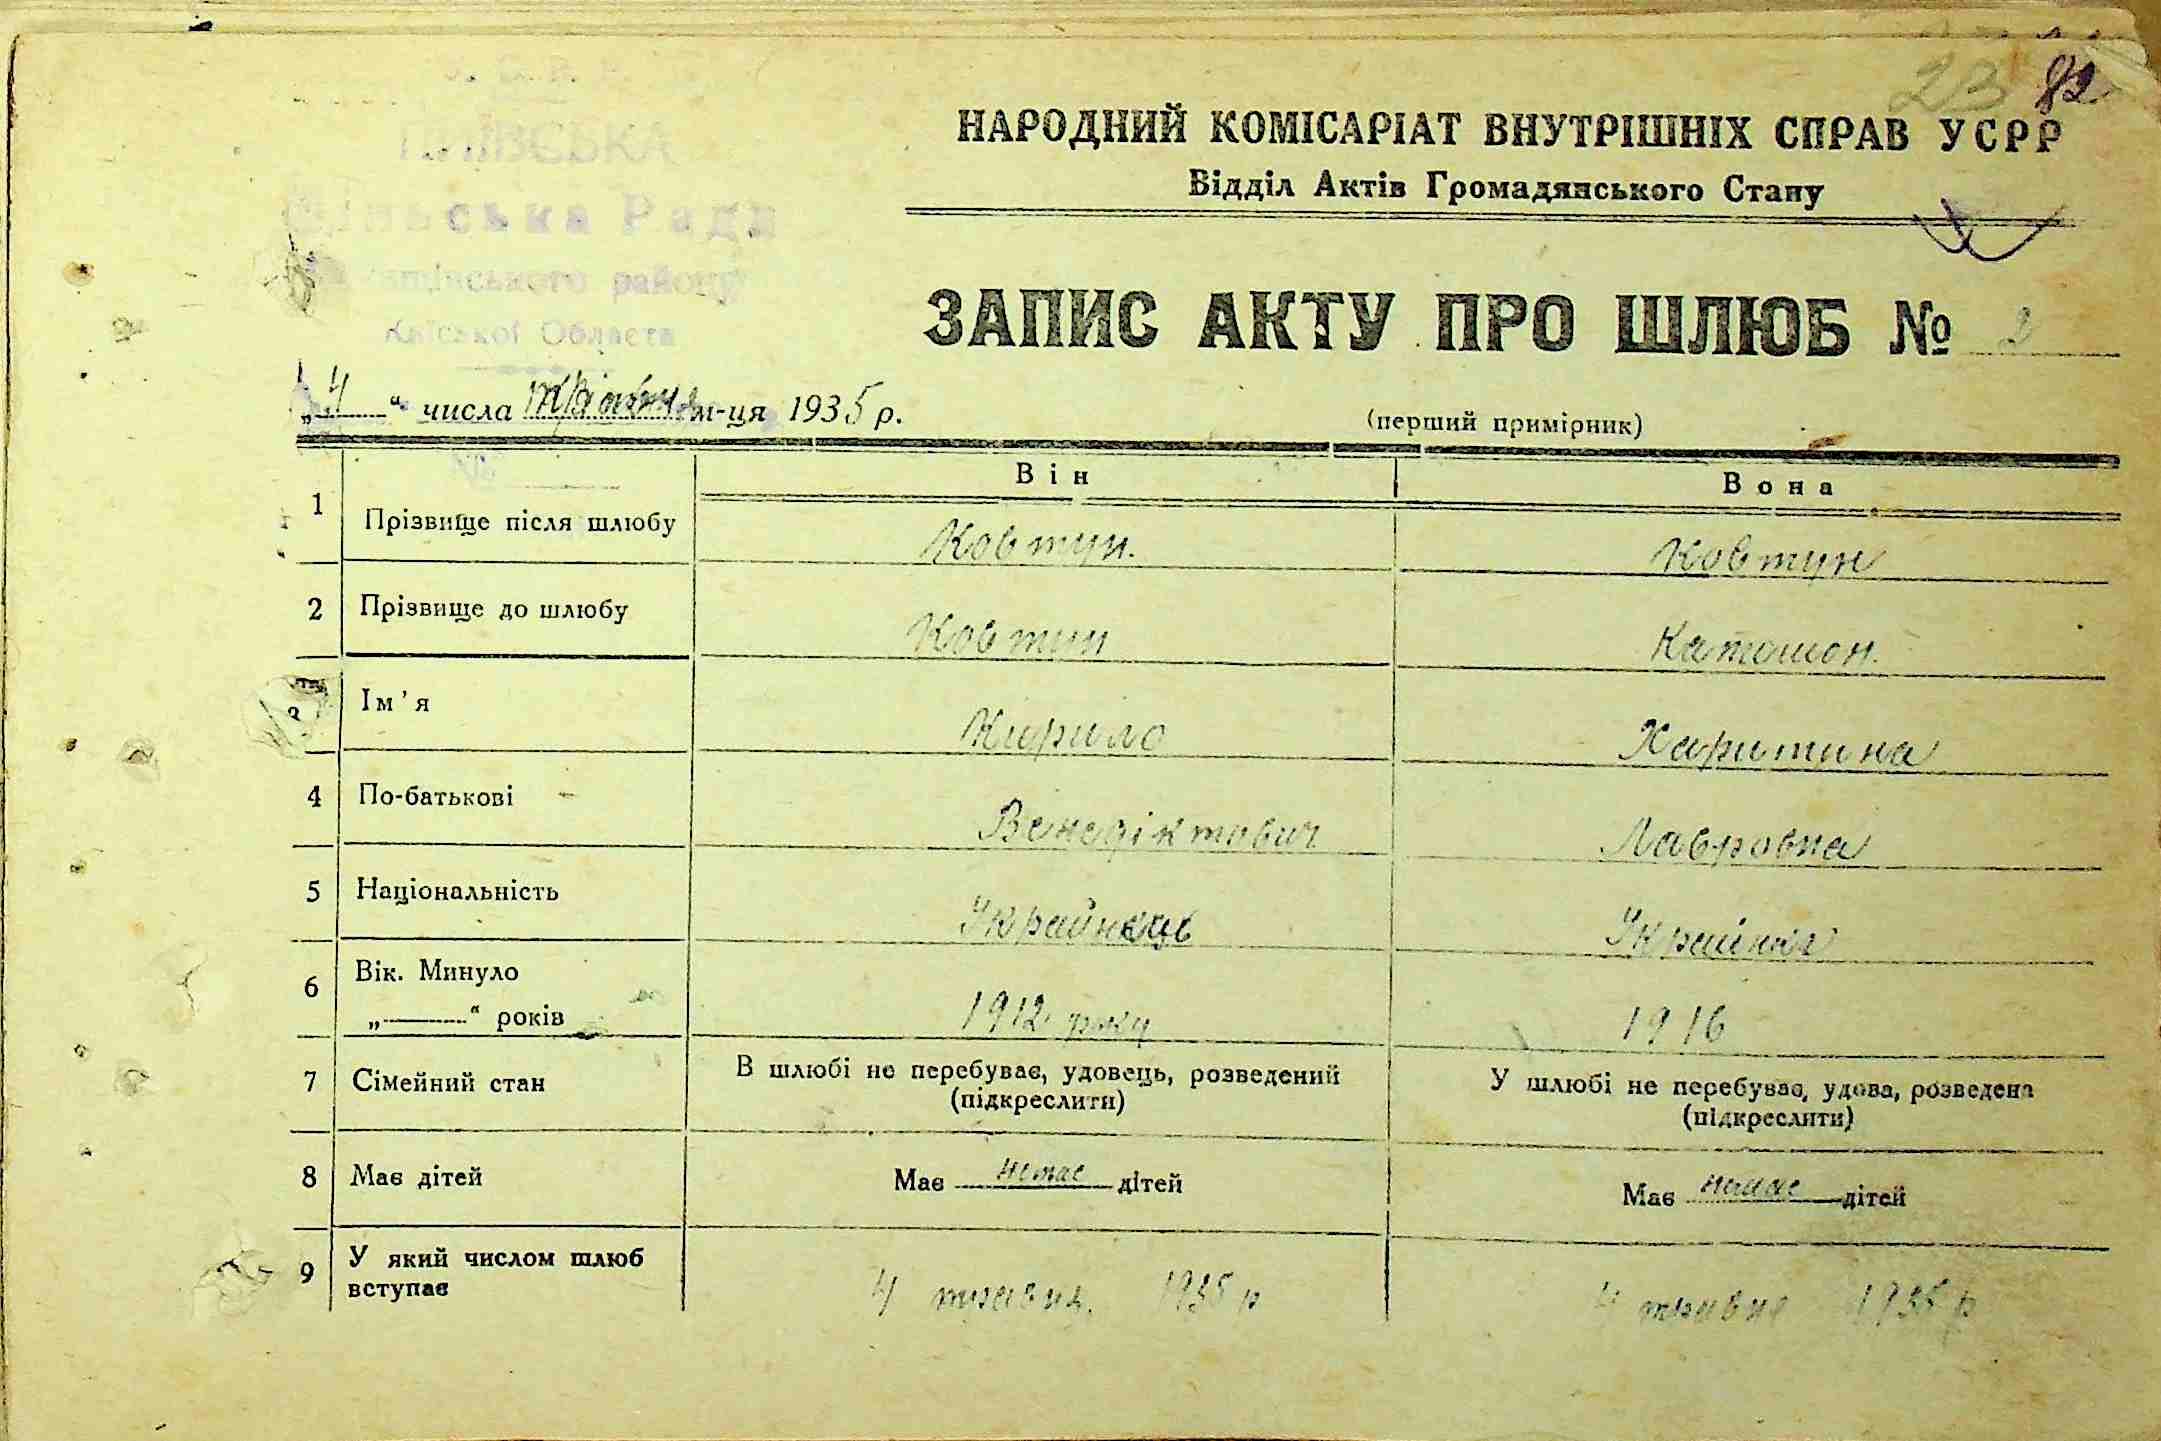 23 82
НАРОДНИЙ КОМІСАРІАТ ВНУТРІШНІХ СПРАВ УСРР
Відділ Актів Громадянського Стану
сільська Рада
району
Київської Области
ЗАПИС АКТУ ПРО ШЛЮБ № 2
„4“ числа м-ця 1935 р.
(перший примірник)
№
Він Вона
1 Прізвище після шлюбу Ковтун. Ковтун
2 Прізвище до шлюбу Ковтун Катошон.
3 Ім'я Кирило Харитина
4 По-батькові Венедіктович Лавровна
5 Національність Украйнець Украінка
6 Вік. Минуло „———“ років 1912 року 1916
7 Сімейний стан В шлюбі не перебуває, удовець, розведений (підкреслити) У шлюбі не перебуває, удова, розведена (підкреслити)
8 Має дітей Має немає дітей Має немає дітей
9 У який числом шлюб вступає 4 травня. 1935 р 4 травня 1935 р